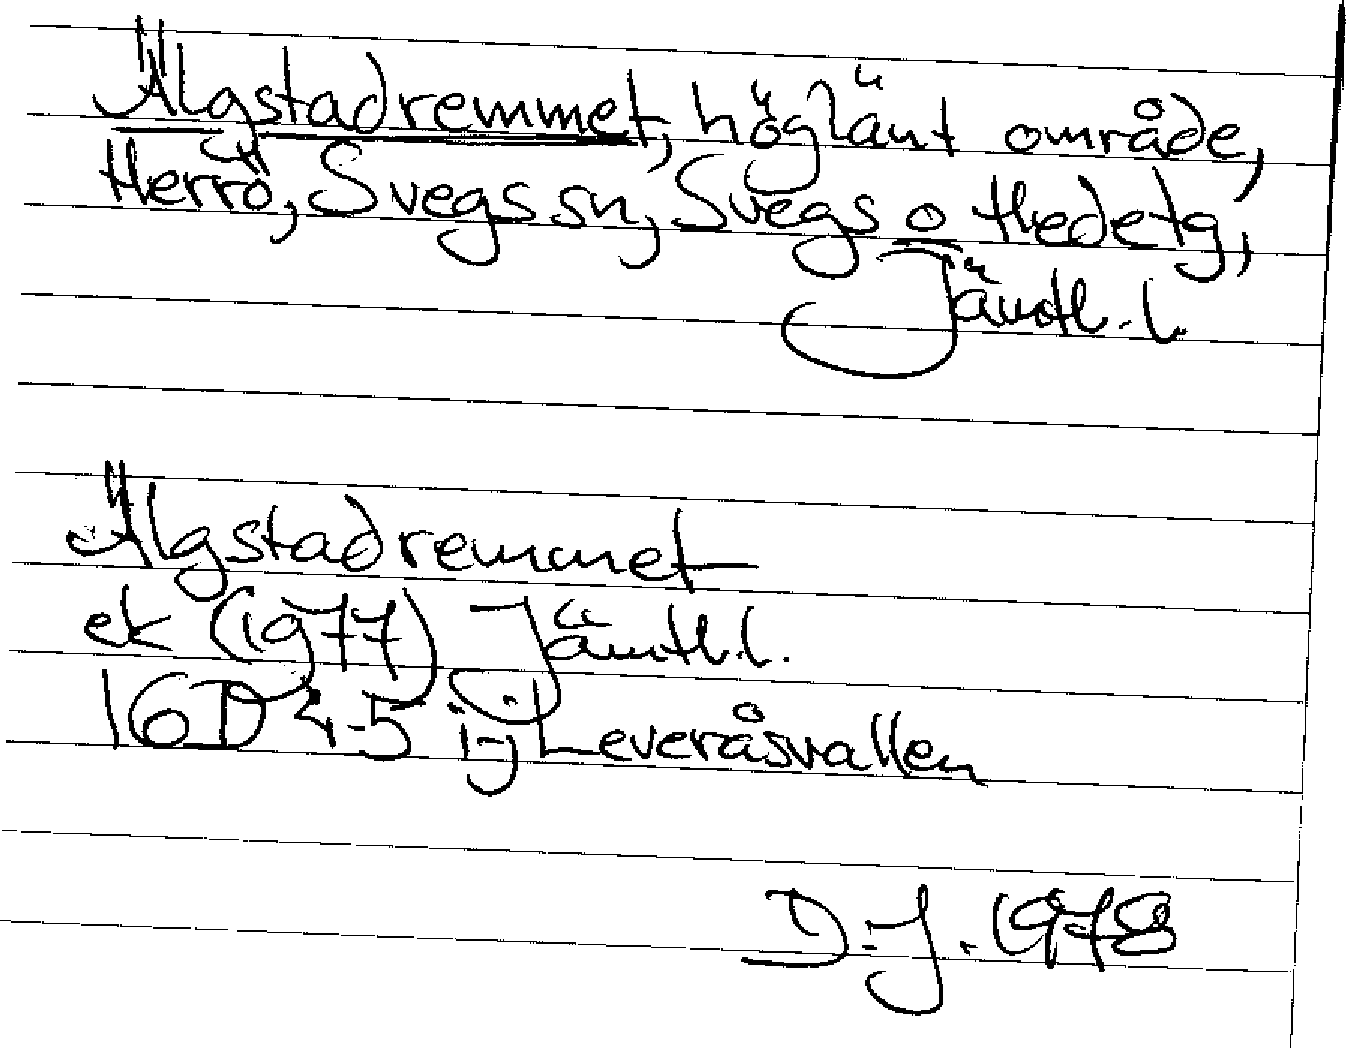 Älgstadremmet, höglänt område,
Herrö, Svegs sn, Svegs o Hedetg,
Jämtl. l.
Älgstadremmet
ek (1977) Jämtl. l.
16D 4-5 i-j Leveråsvallen
D.J. 1978